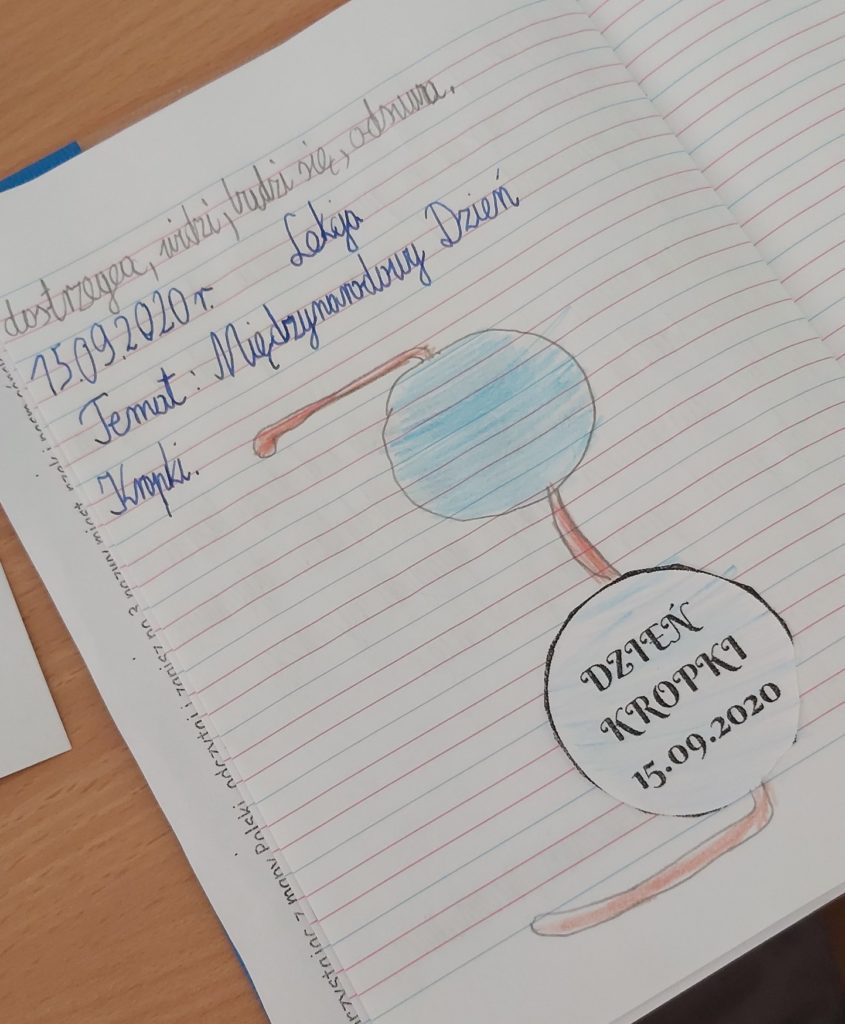 dostrzega, widzi, budzi się, odsuwa.
15.09.2020 r. Lekcja
Temat: Międzynarodowy Dzień
Kropki.
DZIEŃ
KROPKI
15.09.2020
z mapy Polski odczytaj i zapisz na